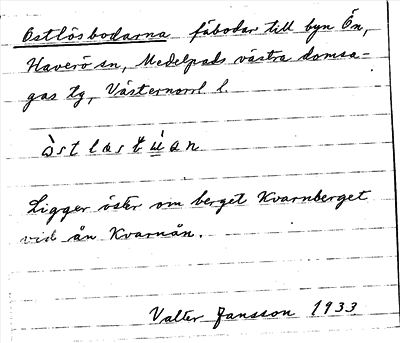 Östlösbodarna fäbodar till byn Ön,
Haverö sn, Medelpads västra domsa-
gas tg, Västernorrl. l.
Ligger öster om berget Kvarnberget
vid ån Kvarnån.
Valter Jansson 1933